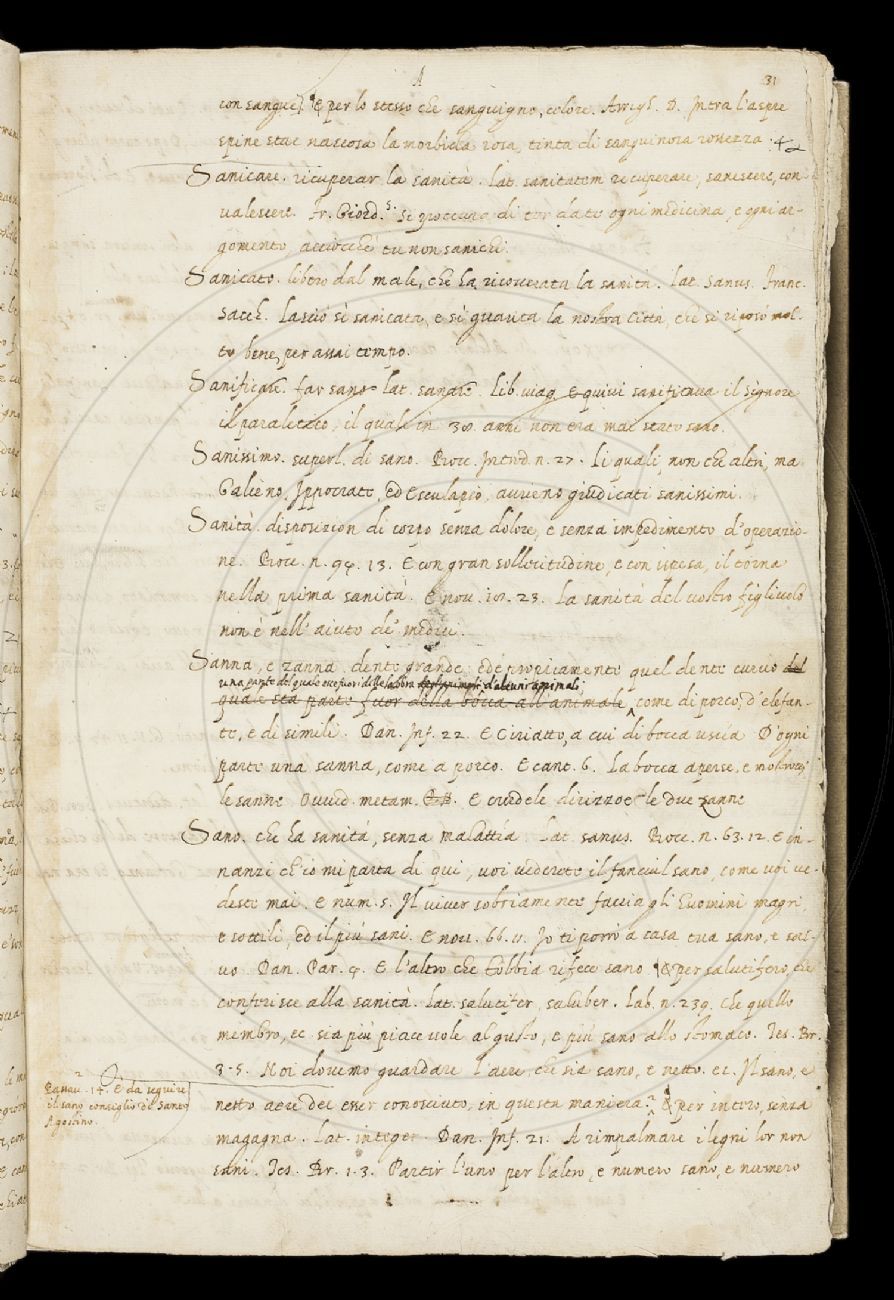 A
31
con sangue. E per lo stesso che sanguigno, colore. Arrigh. D. Intra l'aspre
spine stae nascosa la morbida rosa, tinta di sanguinosa rossezza.
Sanicare. ricuperar la sanità. Lat. sanitatem recuperare, sanescere, con-
valescere. Fr. Giord. S. Si proccura di tor da te ogni medicina, e ogni ar-
gomento acciocchè tu non sanichi.
Sanicato. libero dal male, che ha ricoverata la sanità. Lat. Sanus. Franc.
Sacch. Lasciò sì sanicata, e sì guarita la nostra Città, che si riposò mol-
to bene, per assai tempo.
Sanificare. far sano. lat. sanare. Lib. viag. E quivi sanificava il Signore
il paraletico, il quale in 38. anni non era mai stato sano.
Sanissimo. superl. di sano. Bocc. Introd. n. 27. Li quali, non che altri, ma
Galieno, Ippocrate, ed Esculapio, avrieno giudicati sanissimi.
Sanità. disposizion di corpo senza dolore, e senza impedimento d'operazio-
ne. Bocc. n. 94. 13. E con gran sollecitudine, e con istesa, il torna
nella prima sanità. E nov. 18. 23. La sanità del vostro figliuolo
non è nell'aiuto de' medici.
Sanna, e zanna. dente grande: ed è propriamente quel dente curvo del
una parte del quale esce fuori delle labbra degli animali, d'alcuni animali,
quale sta parte fuor della bocca all'animale, come di porco, d'elefan-
te, e di simili. Dan. Inf. 22. E Ciriatto, a cui di bocca uscia D'ogni
parte una sanna, come a porco. E cant. 6. La bocca aperse, e mostrocci
le sanne Ovvid. metam. E crudele dirizzoe le due zanne
Sano. che ha sanità, senza malattia. Lat. sanus. Bocc. n. 63. 12. E in-
nanzi ch'io mi parta di qui, voi vederete il fanciul sano, come voi ve-
deste mai. E num. 5. Il viver sobriamente faccia gli huomini magri,
e sottili, ed il più sani. E nov. 66. 11. Io ti porrò a casa tua sano, e sal-
vo. Dan. Par. 4. E l'altro che Tobbia rifece sano. E per salutifero, che
conferisce alla sanità. Lat. salutifer, saluber. Lab. n. 239. Che quello
membro, ec. sia più piacevole al gusto, e più sano allo stomaco. Tes. Br.
3. 5. Noi dovemo guardare l'aere, che sia sano, e netto. ec. Il sano, e
netto aere dee esser conosciuto, in questa maniera. E per intero, senza
magagna. Lat. integer. Dan. Inf. 21. A rimpalmare i legni lor non
sani. Tes. Br. 1. 3. Partir l'uno per l'altro, e numero sano, e numero
14. E da seguire
il sano consiglio di Santo
Agostino.